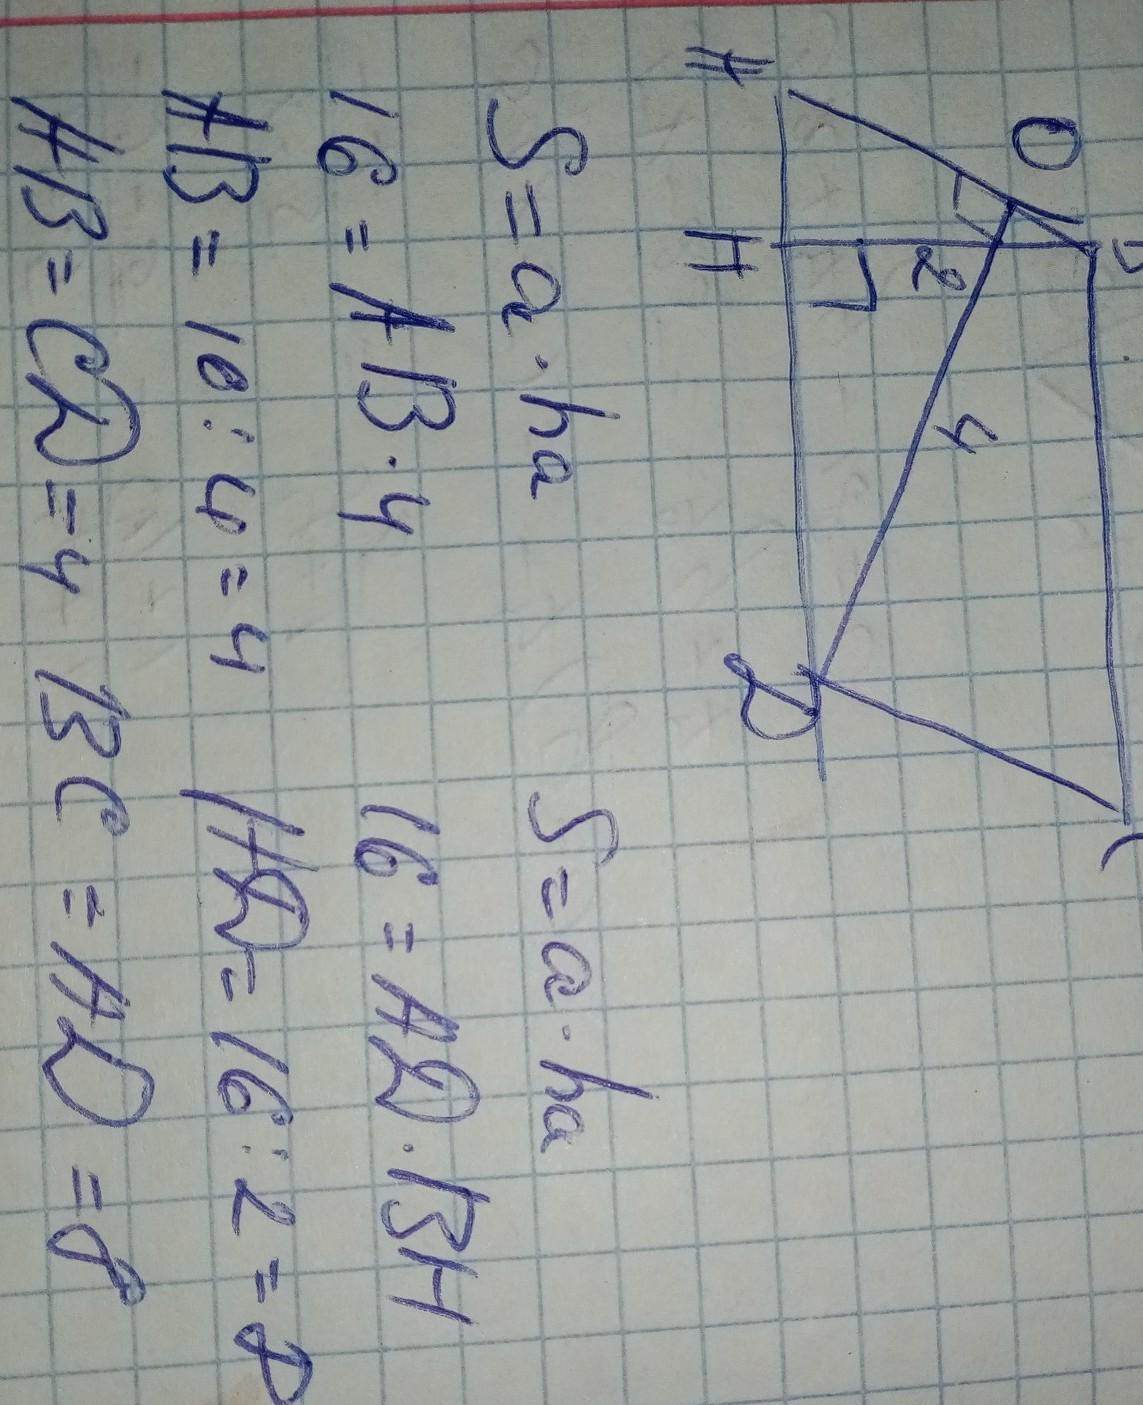 O
4
2
A H D
S = a · ha S = a · ha
16 = AB · 4 16 = AD · BH
AB = 16 : 4 = 4 AD = 16 : 2 = 8
AB = CD = 4 BC = AD = 8